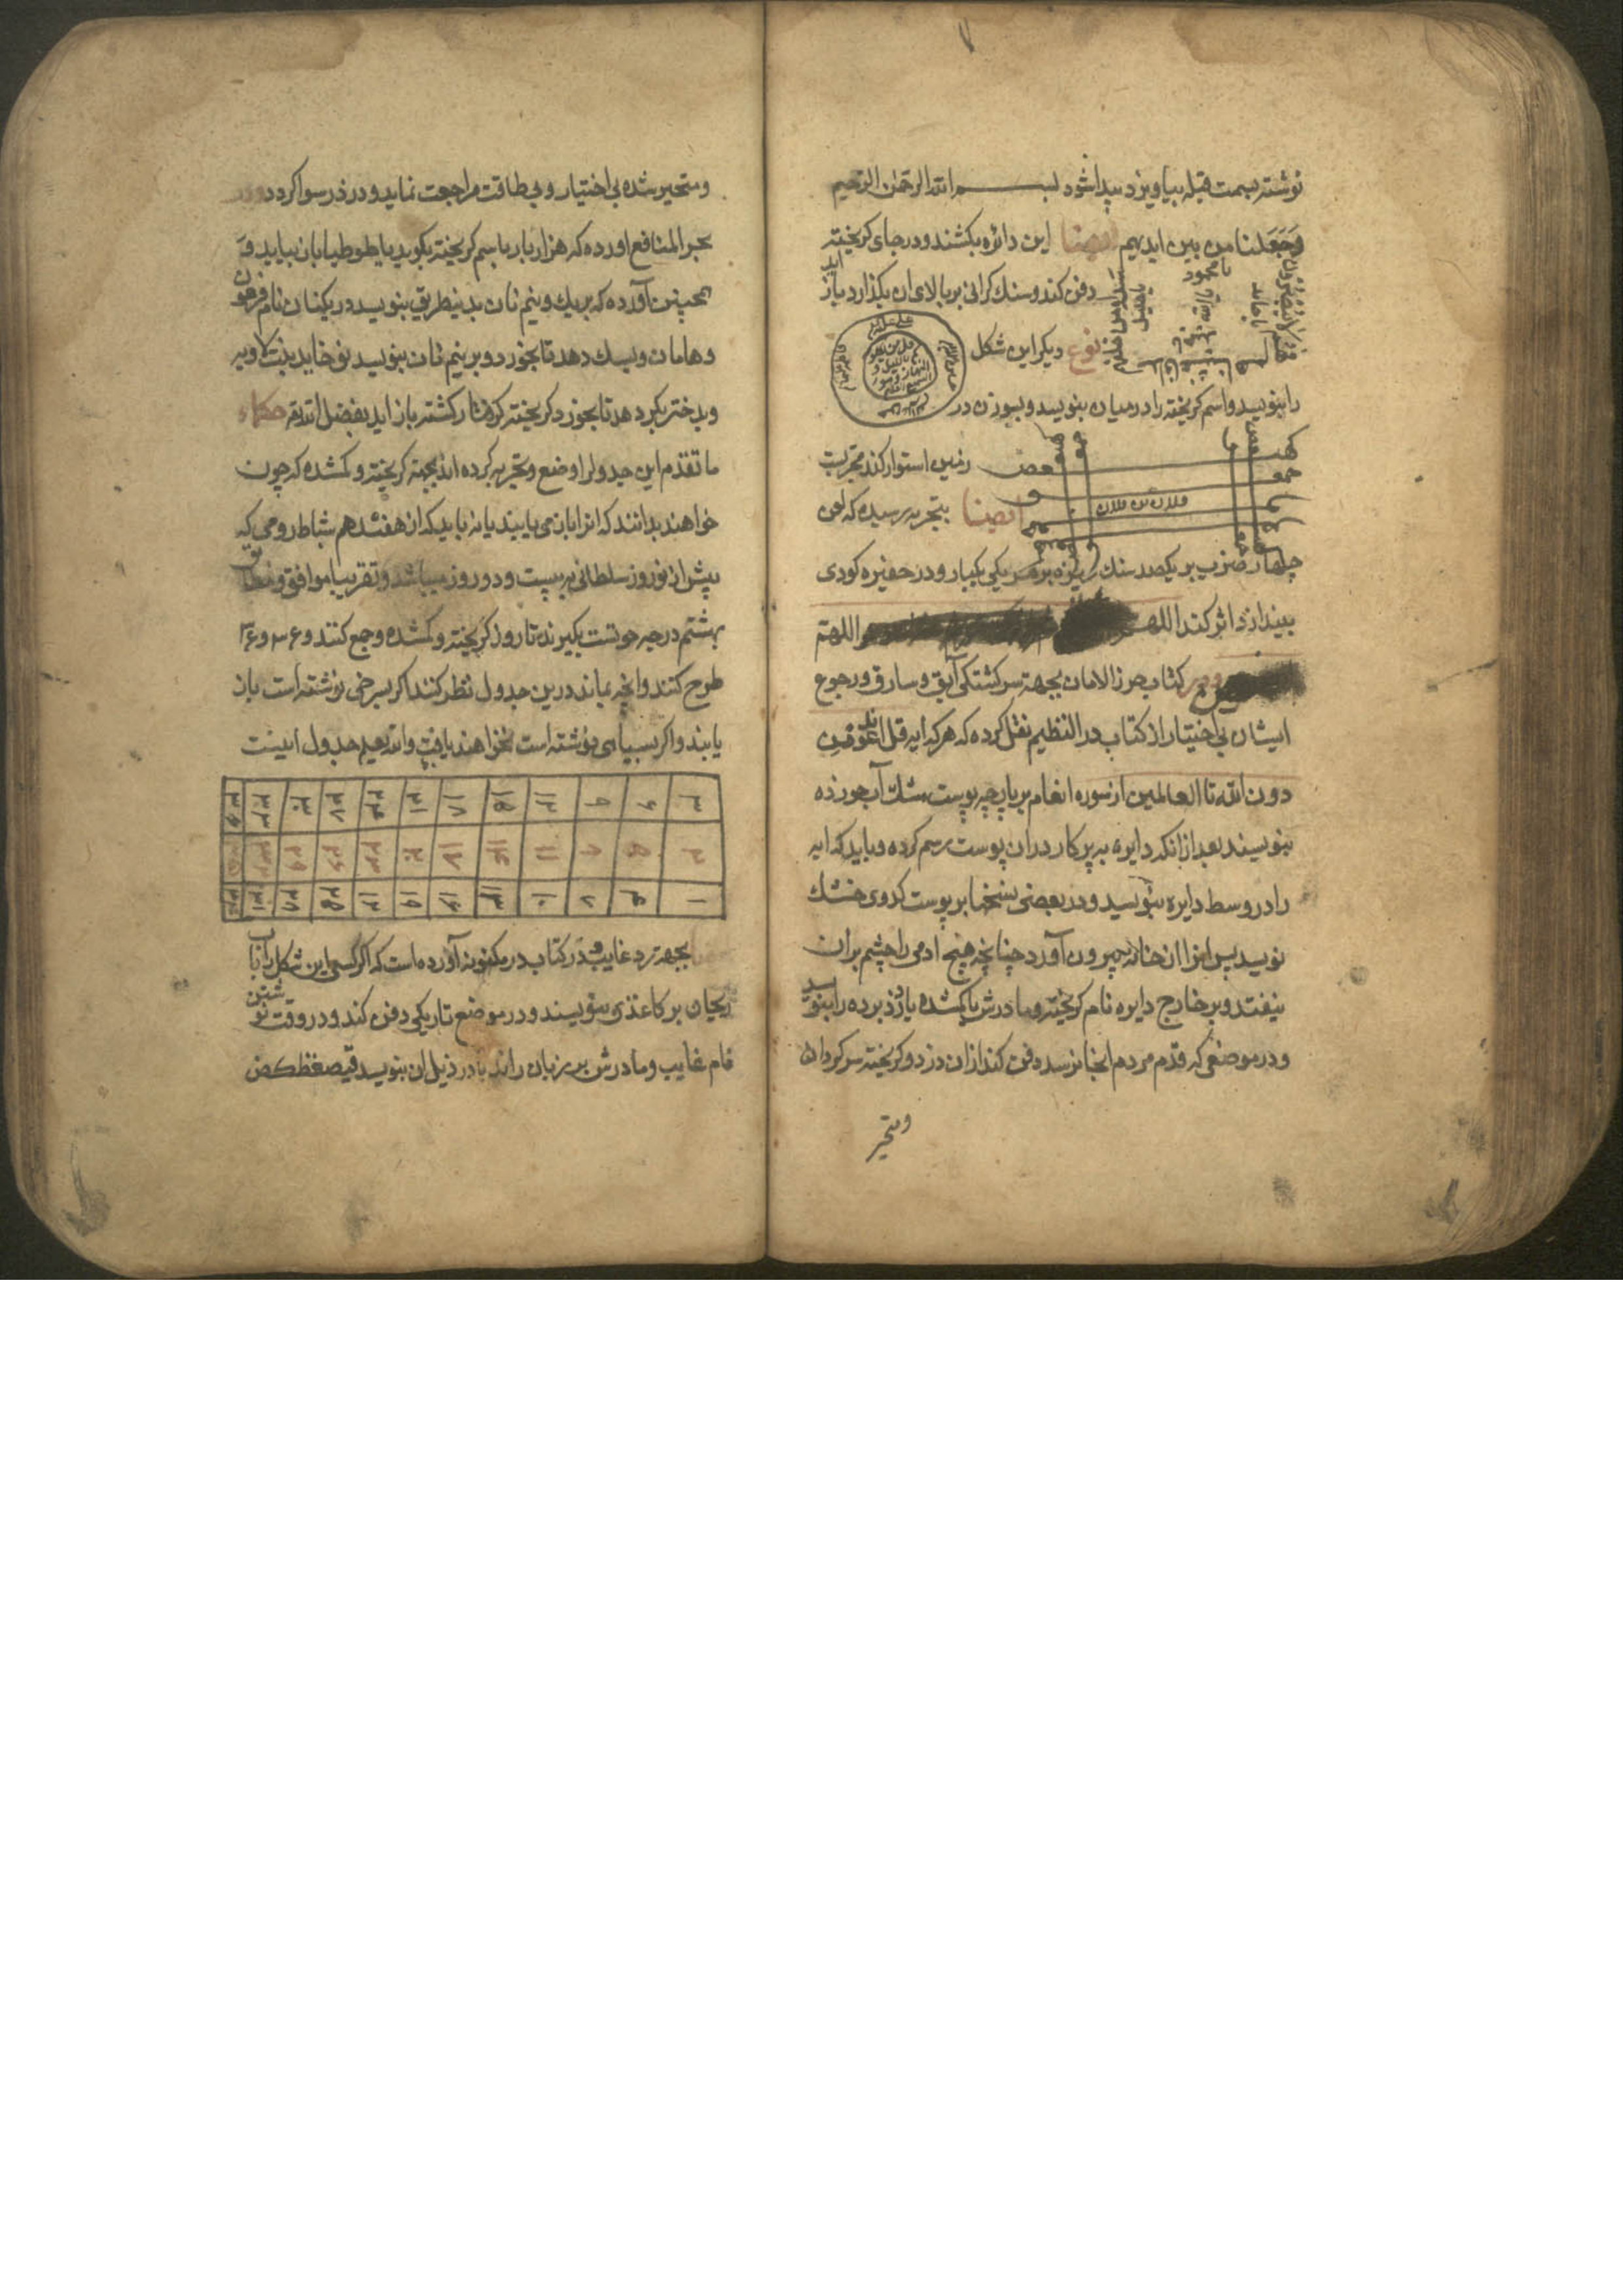 نوشته بسمت قبله بیاویزد پیدا شود بسم الله الرحمن الرحیم
وَجَعَلنا من بین ایدیهم ایضا این دائره بکشند و در جای کریخته
دفن کند و سنک کرانی بر بالای ان بکذارد باز اید
نوع دیکر این شکل
را بنویسد و اسم کریخته را در میان بنویسد و بسوزن در
زمین استوار کند مجربست
فلان بن فلان
ایضا بتجربه رسیده که لعن
چهار ضرب بر یکصد سنک ریزه بر هر یکی یکبار و در حفیره کودی
بیندازد اثر کند اللهم اللهم
کتاب حرز الامان بجهة سرکشتکی آبق و سارق و رجوع
ایشان بی اختیار از کتاب در النظیم نقل کرده که هر که ایه قل اندعوا من
دون الله تا العالمین از سوره انعام بر پارچه پوست مشک آب خورده
بنویسند بعد از انکه دایره به پرکار در ان پوست رسم کرده و باید که ایه
را در وسط دایره بنویسد و در بعضی نسخها بر پوست کدوی خشک
نویسد پس انرا از ان خانه بیرون آورد چنانچه هیچ ادمی را چشم بران
نیفتد و بر خارج دایره نام کریخته و مادرش یا کمشده یا دزد برده را بنویسد
و در موضعی که قدم مردم انجا نرسد دفن کند از ان دزد و کریخته سرکردان
و متحیر
و متحیر شده بی اختیار و بی طاقت مراجعت نماید و دزد رسوا کردد
بحر المنافع اورده که هزار بار باسم کریخته بکوید یا طوطیا بان بیاید و
همچنین آورده که بر یک و نیم نان بدینطریق بنویسد در یکنان نام فرعون
و هامان و بسک دهد تا بخورد و بر نیم نان بنویسد
و بدختر بکر دهد تا بخورد کریخته کرفتار کشته باز اید بفضل الله تعه حکماء
ما تقدم این جدولرا وضع و تجربه کرده اند بجهة کریخته و کمشده که چون
خواهند بدانند که انرا باز می یابیند یا نه باید که از هفتدهم شباط رومی که
پیش از نوروز سلطانی به بیست و دو روز میباشد و تقریبا موافق و مطابق
بهشتم درجه حوتست بکیرند تا روز کریخته و کمشده و جمع کنند و ۳۶ و ۳۶
طرح کنند و انچه بماند درین جدول نظر کنند اکر بسرخی نوشته است باز
یابند و اکر بسیاهی نوشته است نخواهند یافت والله یعلم جدول اینست
۳ ۶ ۹ ۱۲ ۱۵ ۱۸ ۲۱ ۲۴ ۲۷ ۳۰ ۳۳ ۳۶
۲ ۵ ۸ ۱۱ ۱۴ ۱۷ ۲۰ ۲۳ ۲۶ ۲۹ ۳۲ ۳۵
۱ ۴ ۷ ۱۰ ۱۳ ۱۶ ۱۹ ۲۲ ۲۵ ۲۸ ۳۱ ۳۴
بجهة رد غایب در کتاب در مکنونه آورده است که اکر کسی این شکل را باب
ریحان بر کاغذی بنویسند و در موضع تاریکی دفن کند و در وقت نوشتن
نام غایب و مادرش بر زبان راند یا در ذیل ان بنویسد